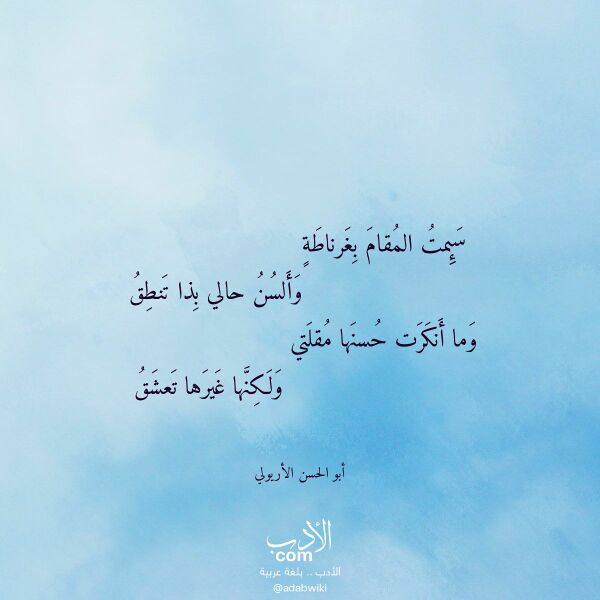 سَئِمتُ المُقامَ بِغَرناطَةٍ
وَأَلسُنُ حالي بِذا تَنطِقُ
وَما أَنكَرَت حُسنَها مُقلَتي
وَلَكِنَّها غَيرَها تَعشَقُ
أبو الحسن الأريولي
الأدب
com
الأدب .. بلغة عربية
@adabwiki